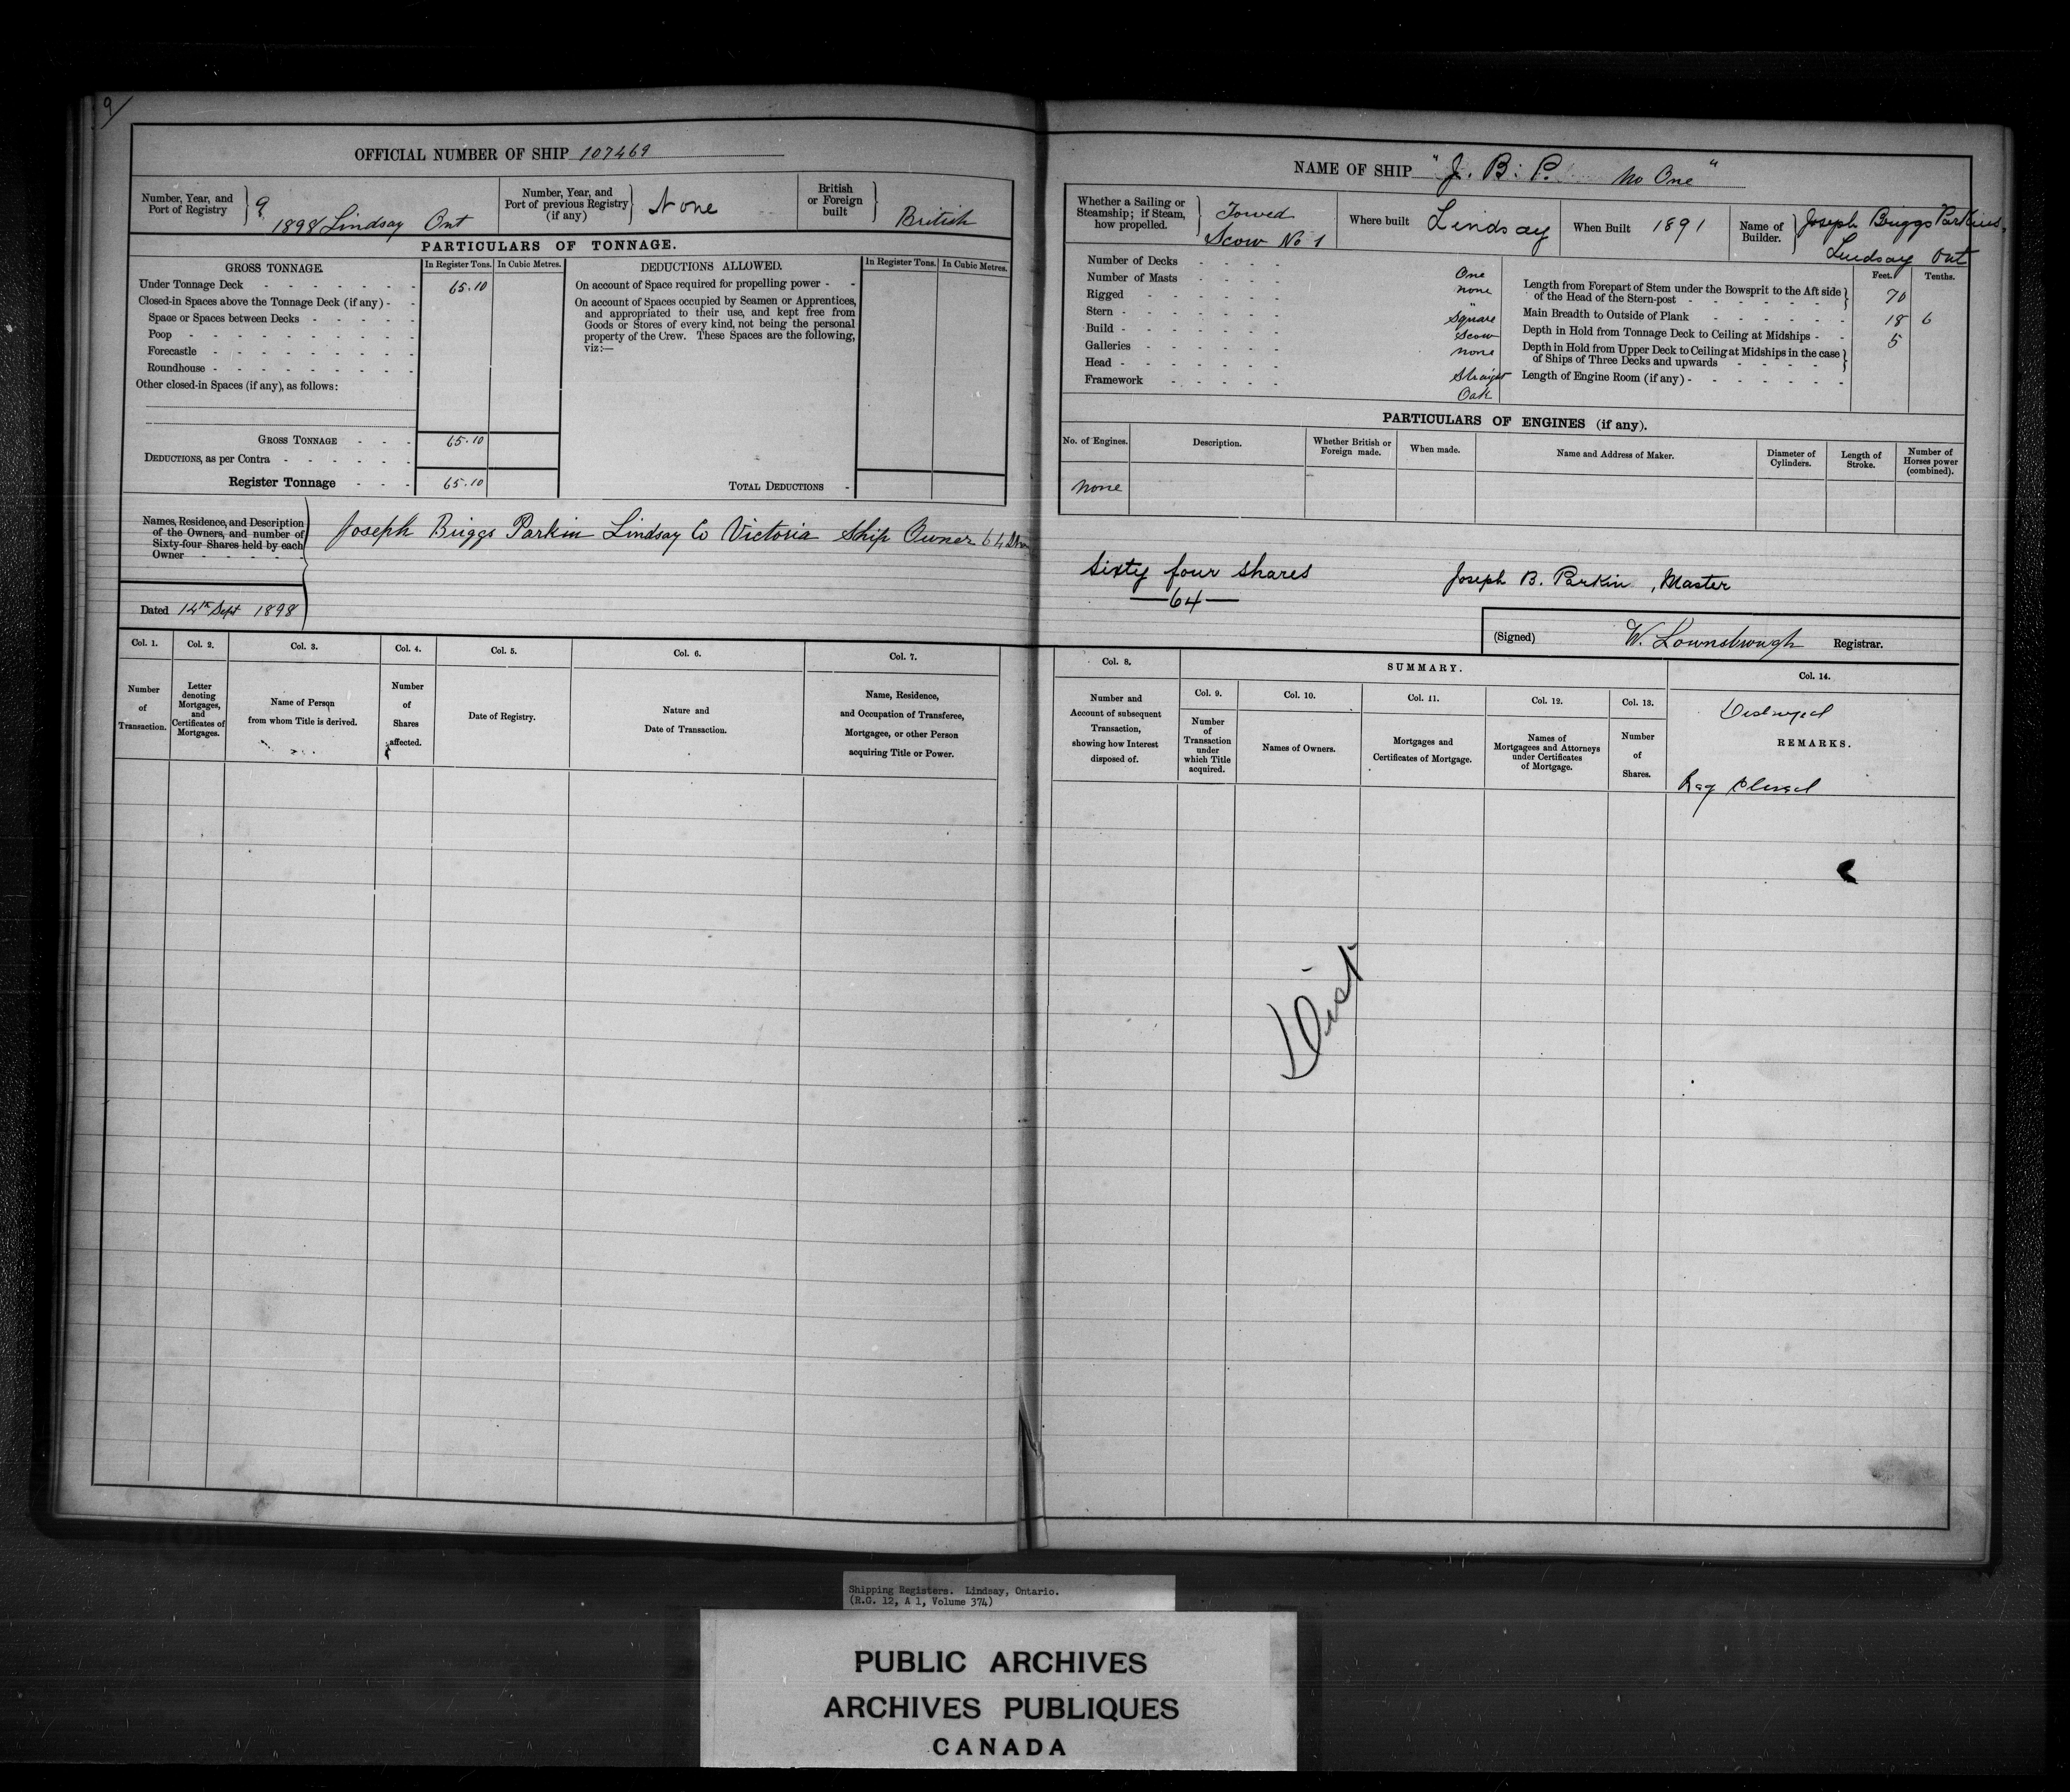 9
OFFICIAL NUMBER OF SHIP 107469
Number, Year, and Port of Registry } 9 1898 Lindsay Ont
Number, Year, and Port of previous Registry (if any) } None
British or Foreign built } British
PARTICULARS OF TONNAGE.
GROSS TONNAGE. In Register Tons. In Cubic Metres.
Under Tonnage Deck 65.10
Closed-in Spaces above the Tonnage Deck (if any) -
Space or Spaces between Decks
Poop
Forecastle
Roundhouse
Other closed-in Spaces (if any), as follows:
GROSS TONNAGE 65.10
DEDUCTIONS, as per Contra
Register Tonnage 65.10
DEDUCTIONS ALLOWED. In Register Tons. In Cubic Metres.
On account of Space required for propelling power -
On account of Spaces occupied by Seamen or Apprentices,
and appropriated to their use, and kept free from
Goods or Stores of every kind, not being the personal
property of the Crew. These Spaces are the following,
viz:—
TOTAL DEDUCTIONS -
Names, Residence, and Description
of the Owners, and number of
Sixty-four Shares held by each
Owner
Joseph Briggs Parkin Lindsay Co Victoria Ship Owner 64
Dated 14th Sept 1898
Col. 1. Number of Transaction.
Col. 2. Letter denoting Mortgages, and Certificates of Mortgages.
Col. 3. Name of Person from whom Title is derived.
Col. 4. Number of Shares affected.
Col. 5. Date of Registry.
Col. 6. Nature and Date of Transaction.
Col. 7. Name, Residence, and Occupation of Transferee, Mortgagee, or other Person acquiring Title or Power.
NAME OF SHIP "J. B. P. No One"
Whether a Sailing or Steamship; if Steam, how propelled. } Towed Scow No 1
Where built Lindsay
When Built 1891
Name of Builder. } Joseph Briggs Parkins, Lindsay Ont
Number of Decks One
Number of Masts none
Rigged "
Stern Square
Build Scow
Galleries none
Head Straight
Framework Oak
Feet. Tenths.
Length from Forepart of Stem under the Bowsprit to the Aft side
of the Head of the Stern-post 70
Main Breadth to Outside of Plank 18 6
Depth in Hold from Tonnage Deck to Ceiling at Midships - 5
Depth in Hold from Upper Deck to Ceiling at Midships in the case
of Ships of Three Decks and upwards
Length of Engine Room (if any) -
PARTICULARS OF ENGINES (if any).
No. of Engines. Description. Whether British or Foreign made. When made. Name and Address of Maker. Diameter of Cylinders. Length of Stroke. Number of Horses power (combined).
none
Sixty four shares
—64—
Joseph B. Parkin, Master
(Signed) W. Lownsbrough Registrar.
Col. 8. Number and Account of subsequent Transaction, showing how Interest disposed of.
SUMMARY.
Col. 9. Number of Transaction under which Title acquired.
Col. 10. Names of Owners.
Col. 11. Mortgages and Certificates of Mortgage.
Col. 12. Names of Mortgagees and Attorneys under Certificates of Mortgage.
Col. 13. Number of Shares.
Col. 14.
Destroyed
REMARKS.
Reg Closed
Dist
Shipping Registers. Lindsay, Ontario.
(R.G. 12, A 1, Volume 374)
PUBLIC ARCHIVES
ARCHIVES PUBLIQUES
CANADA